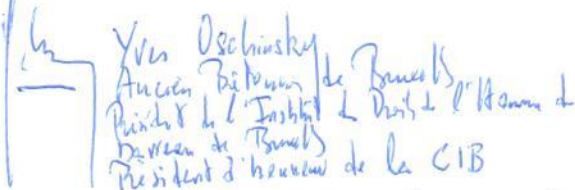 Yves Oschinsky
Ancien Bâtonnier de Bruxelles
Président de l'Institut des Droits de l'Homme du
barreau de Bruxelles
Président d'honneur de la CIB